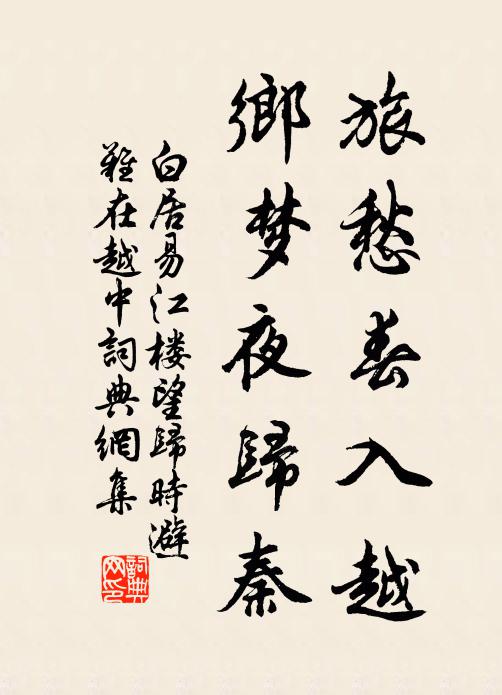 旅愁春入越
鄉梦夜歸秦
白居易江楼望歸時避
難在越中詞典網集
詞典
网印